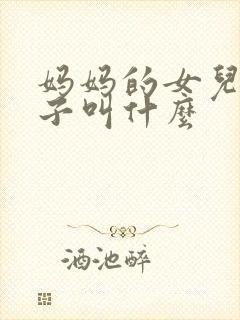 妈妈的女兒
子叫什麼
酒池醉